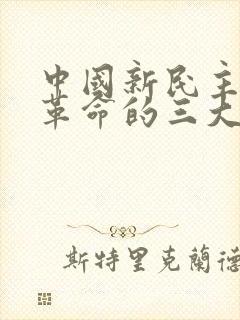 中國新民主
革命的三大
斯特里克蘭德